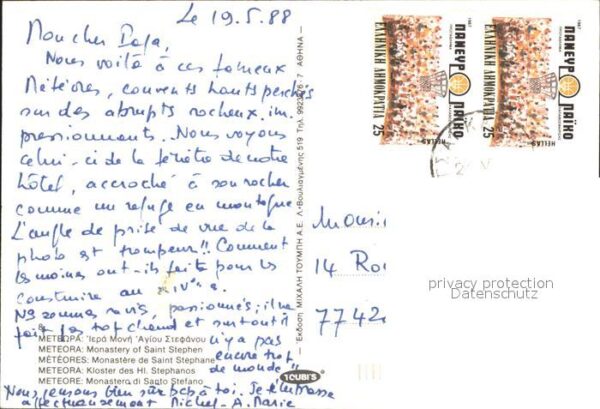 Le 19.5.88
Mon cher Papa,
Nous voilà à ces fameux
Météores, couvents hauts perchés
sur des abrupts rocheux im-
pressionnants. Nous voyons
celui-ci de la fenêtre de notre
hôtel, accroché à son rocher
comme un refuge en montagne
L'angle de prise de vue de la
photo est trompeur!! Comment
les moines ont-ils fait pour les
construire au XIVe s.
Ns sommes ravis, passionnés; il ne
fait pas trop chaud et surtout il
n'y a pas
encore trop
de monde!!
Nous pensons bien sûr à toi. Je t'embrasse
affectueusement Michel - A. Marie
ΜΕΤΕΩΡΑ: Ἱερά Μονή Ἁγίου Στεφάνου
METEORA: Monastery of Saint Stephen
MÉTÉORES: Monastère de Saint Stephane
METEORA: Kloster des Hl. Stephanos
METEORE: Monastero di Santo Stefano
TOUBI'S
Έκδοση ΜΙΧΑΛΗ ΤΟΥΜΠΗ Α.Ε. Λ. Βουλιαγμένης 519 Τηλ. 9923876-7 ΑΘΗΝΑ
1987
ΠΑΝΕΥΡΩΠΑΪΚΟ
ΕΛΛΗΝΙΚΗ ΔΗΜΟΚΡΑΤΙΑ
HELLAS
25
1987
ΠΑΝΕΥΡΩΠΑΪΚΟ
ΕΛΛΗΝΙΚΗ ΔΗΜΟΚΡΑΤΙΑ
HELLAS
25
Monsi
14 Ro
7742
privacy protection
Datenschutz